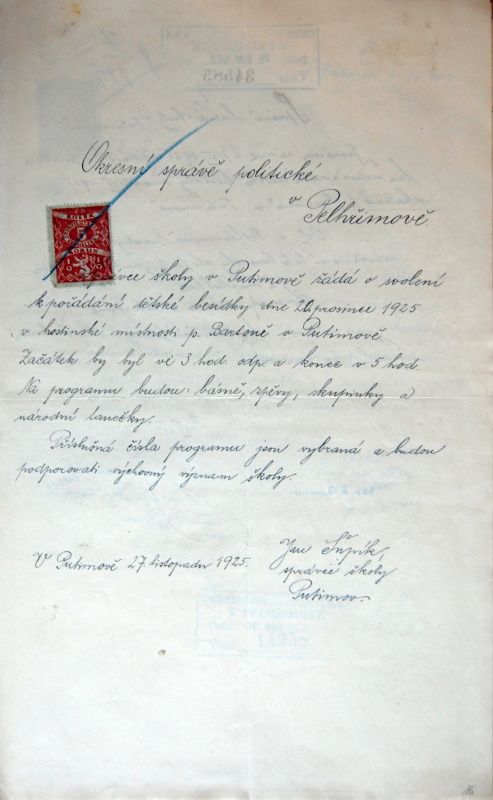 Okresní správě politické
v Pelhřimově.
ČS
KOLEK
5
KORUN
Správce školy v Putimově žádá o svolení
k pořádání dětské besídky dne 20. prosince 1925
v hostinské místnosti p. Bartoně v Putimově.
Začátek by byl ve 3 hod. odp. a konec v 5 hod.
Na programu budou: básně, zpěvy, skupinky a
národní tanečky.
Příslušná čísla programu jsou vybraná a budou
podporovati výchovný význam školy.
V Putimově 27. listopadu 1925.
Jan
správce školy
Putimov.
34585